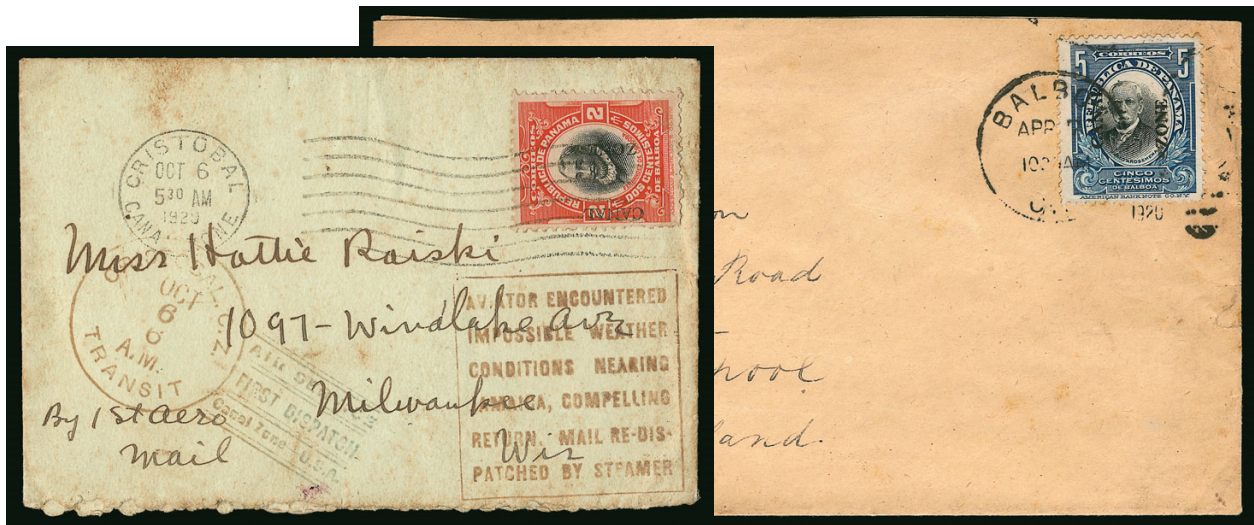 CRISTOBAL
OCT 6
5 30 AM
1920
CANAL ZONE
CORREOS
REPUBLICA DE PANAMA
2
DOS CENTESIMOS
DE BALBOA
2
CANAL
Miss Hattie Raiski
1097 - Windlake Ave
Milwaukee
Wis
By 1st Aero
Mail
OCT
6
6
A.M.
TRANSIT
AIR SERVICE
FIRST DISPATCH
Canal Zone - U.S.A.
AVIATOR ENCOUNTERED
IMPOSSIBLE WEATHER
CONDITIONS NEARING
JAMAICA, COMPELLING
RETURN. MAIL RE-DIS-
PATCHED BY STEAMER
BALBO
APR
AM
1920
5 CORREOS 5
REPUBLICA DE PANAMA
CANAL
ZONE
CINCO
CENTESIMOS
DE BALBOA
AMERICAN BANK NOTE CO. N.Y.
on
Road
pool
land.